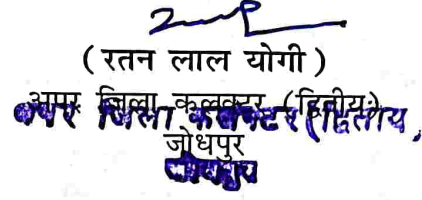 ( रतन लाल योगी )
अपर जिला कलक्टर (द्वितीय)
अपर जिला कलक्टर (द्वितीय,
जोधपुर
जोधपुर